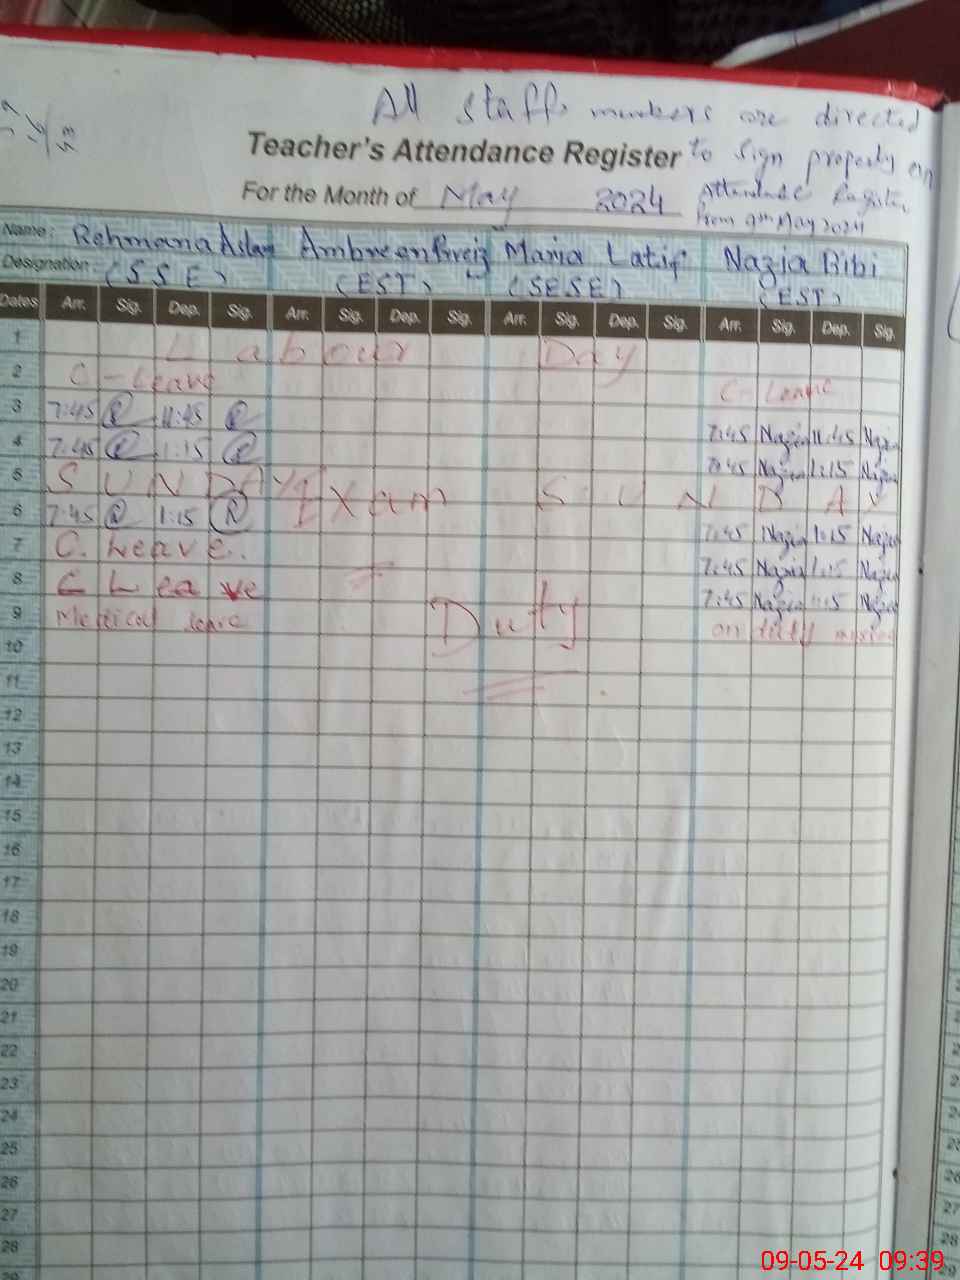 All staff members are directed
Teacher's Attendance Register to sign properly on
For the Month of May 2024 Attendance Register
from 9th May 2024
Name: Rehmana Aslam Ambreen Parveiz Maria Latif Nazia Bibi
Designation: (SSE) (EST) (SESE) (EST)
Dates Arr. Sig. Dep. Sig. Arr. Sig. Dep. Sig. Arr. Sig. Dep. Sig. Arr. Sig. Dep. Sig.
1 Labour Day
2 C-Leave C-Leave
3 7:45 11:45 7:45 Nazia 11:45 Nazia
4 7:45 1:15 7:45 Nazia 1:15 Nazia
5 SUNDAY Exam SUNDAY
6 7:45 1:15 7:45 Nazia 1:15 Nazia
7 C. Leave. 7:45 Nazia 1:15 Nazia
8 C Leave 7:45 Nazia 1:15 Nazia
9 Medical leave Duty on duty
10
11
12
13
14
15
16
17
18
19
20
21
22
23
24
25
26
27
28
29
09-05-24 09:39